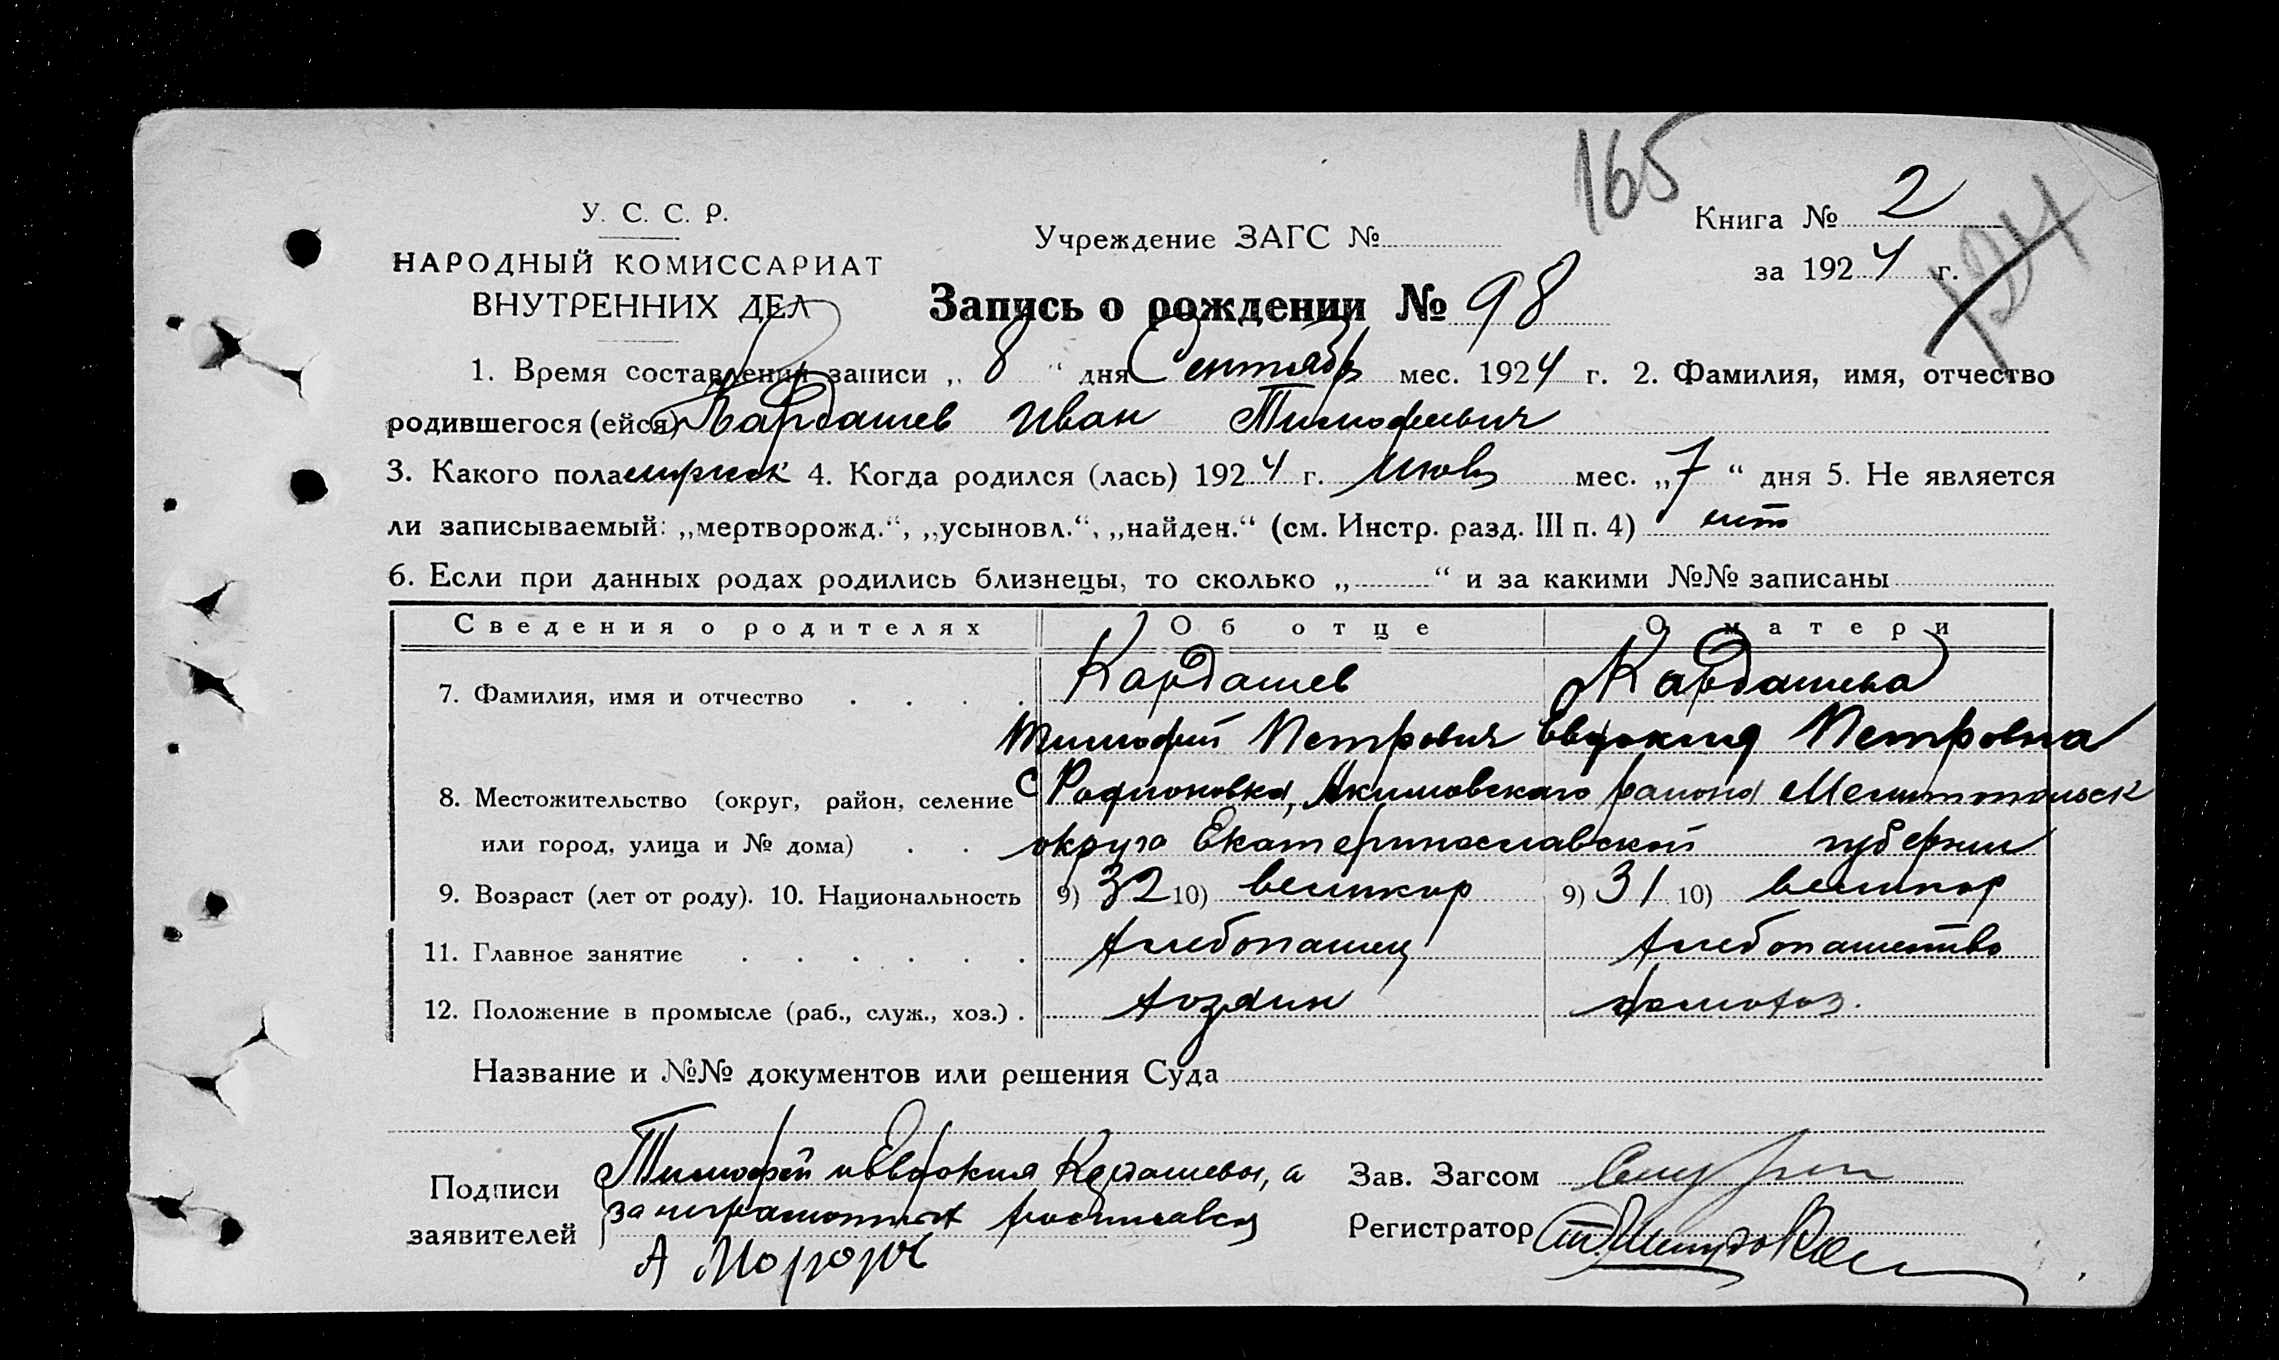 165
У. С. С. Р.
НАРОДНЫЙ КОМИССАРИАТ
ВНУТРЕННИХ ДЕЛ
Учреждение ЗАГС №
Книга № 2
за 1924 г.
Запись о рождении № 98
1. Время составления записи „ 8 “ дня Сентябр мес. 1924 г. 2. Фамилия, имя, отчество
родившегося (ейся) Кардашев Иван Тимофеевич
3. Какого пола мужск 4. Когда родился (лась) 1924 г. мес. „ 7 “ дня 5. Не является
ли записываемый: „мертворожд.“, „усыновл.“, „найден.“ (см. Инстр. разд. III п. 4) нет
6. Если при данных родах родились близнецы, то сколько „ “ и за какими №№ записаны
Сведения о родителях Об отце О матери
7. Фамилия, имя и отчество . . . . Кардашев Кардашева
Тимофей Петрович Евдокия Петровна
8. Местожительство (округ, район, селение с Родионовка, Акимовского района Мелитопольск
или город, улица и № дома) . . округа Екатеринославской губернии
9. Возраст (лет от роду). 10. Национальность 9) 32 10) великор 9) 31 10) великор
11. Главное занятие . . . . . . Хлебопашец Хлебопашество
12. Положение в промысле (раб., служ., хоз.) . хозяин домохоз.
Название и №№ документов или решения Суда
Подписи
заявителей
Тимофей и Евдокия Кардашевы, а
за неграмотных расписався
А Мороз
Зав. Загсом
Регистратор